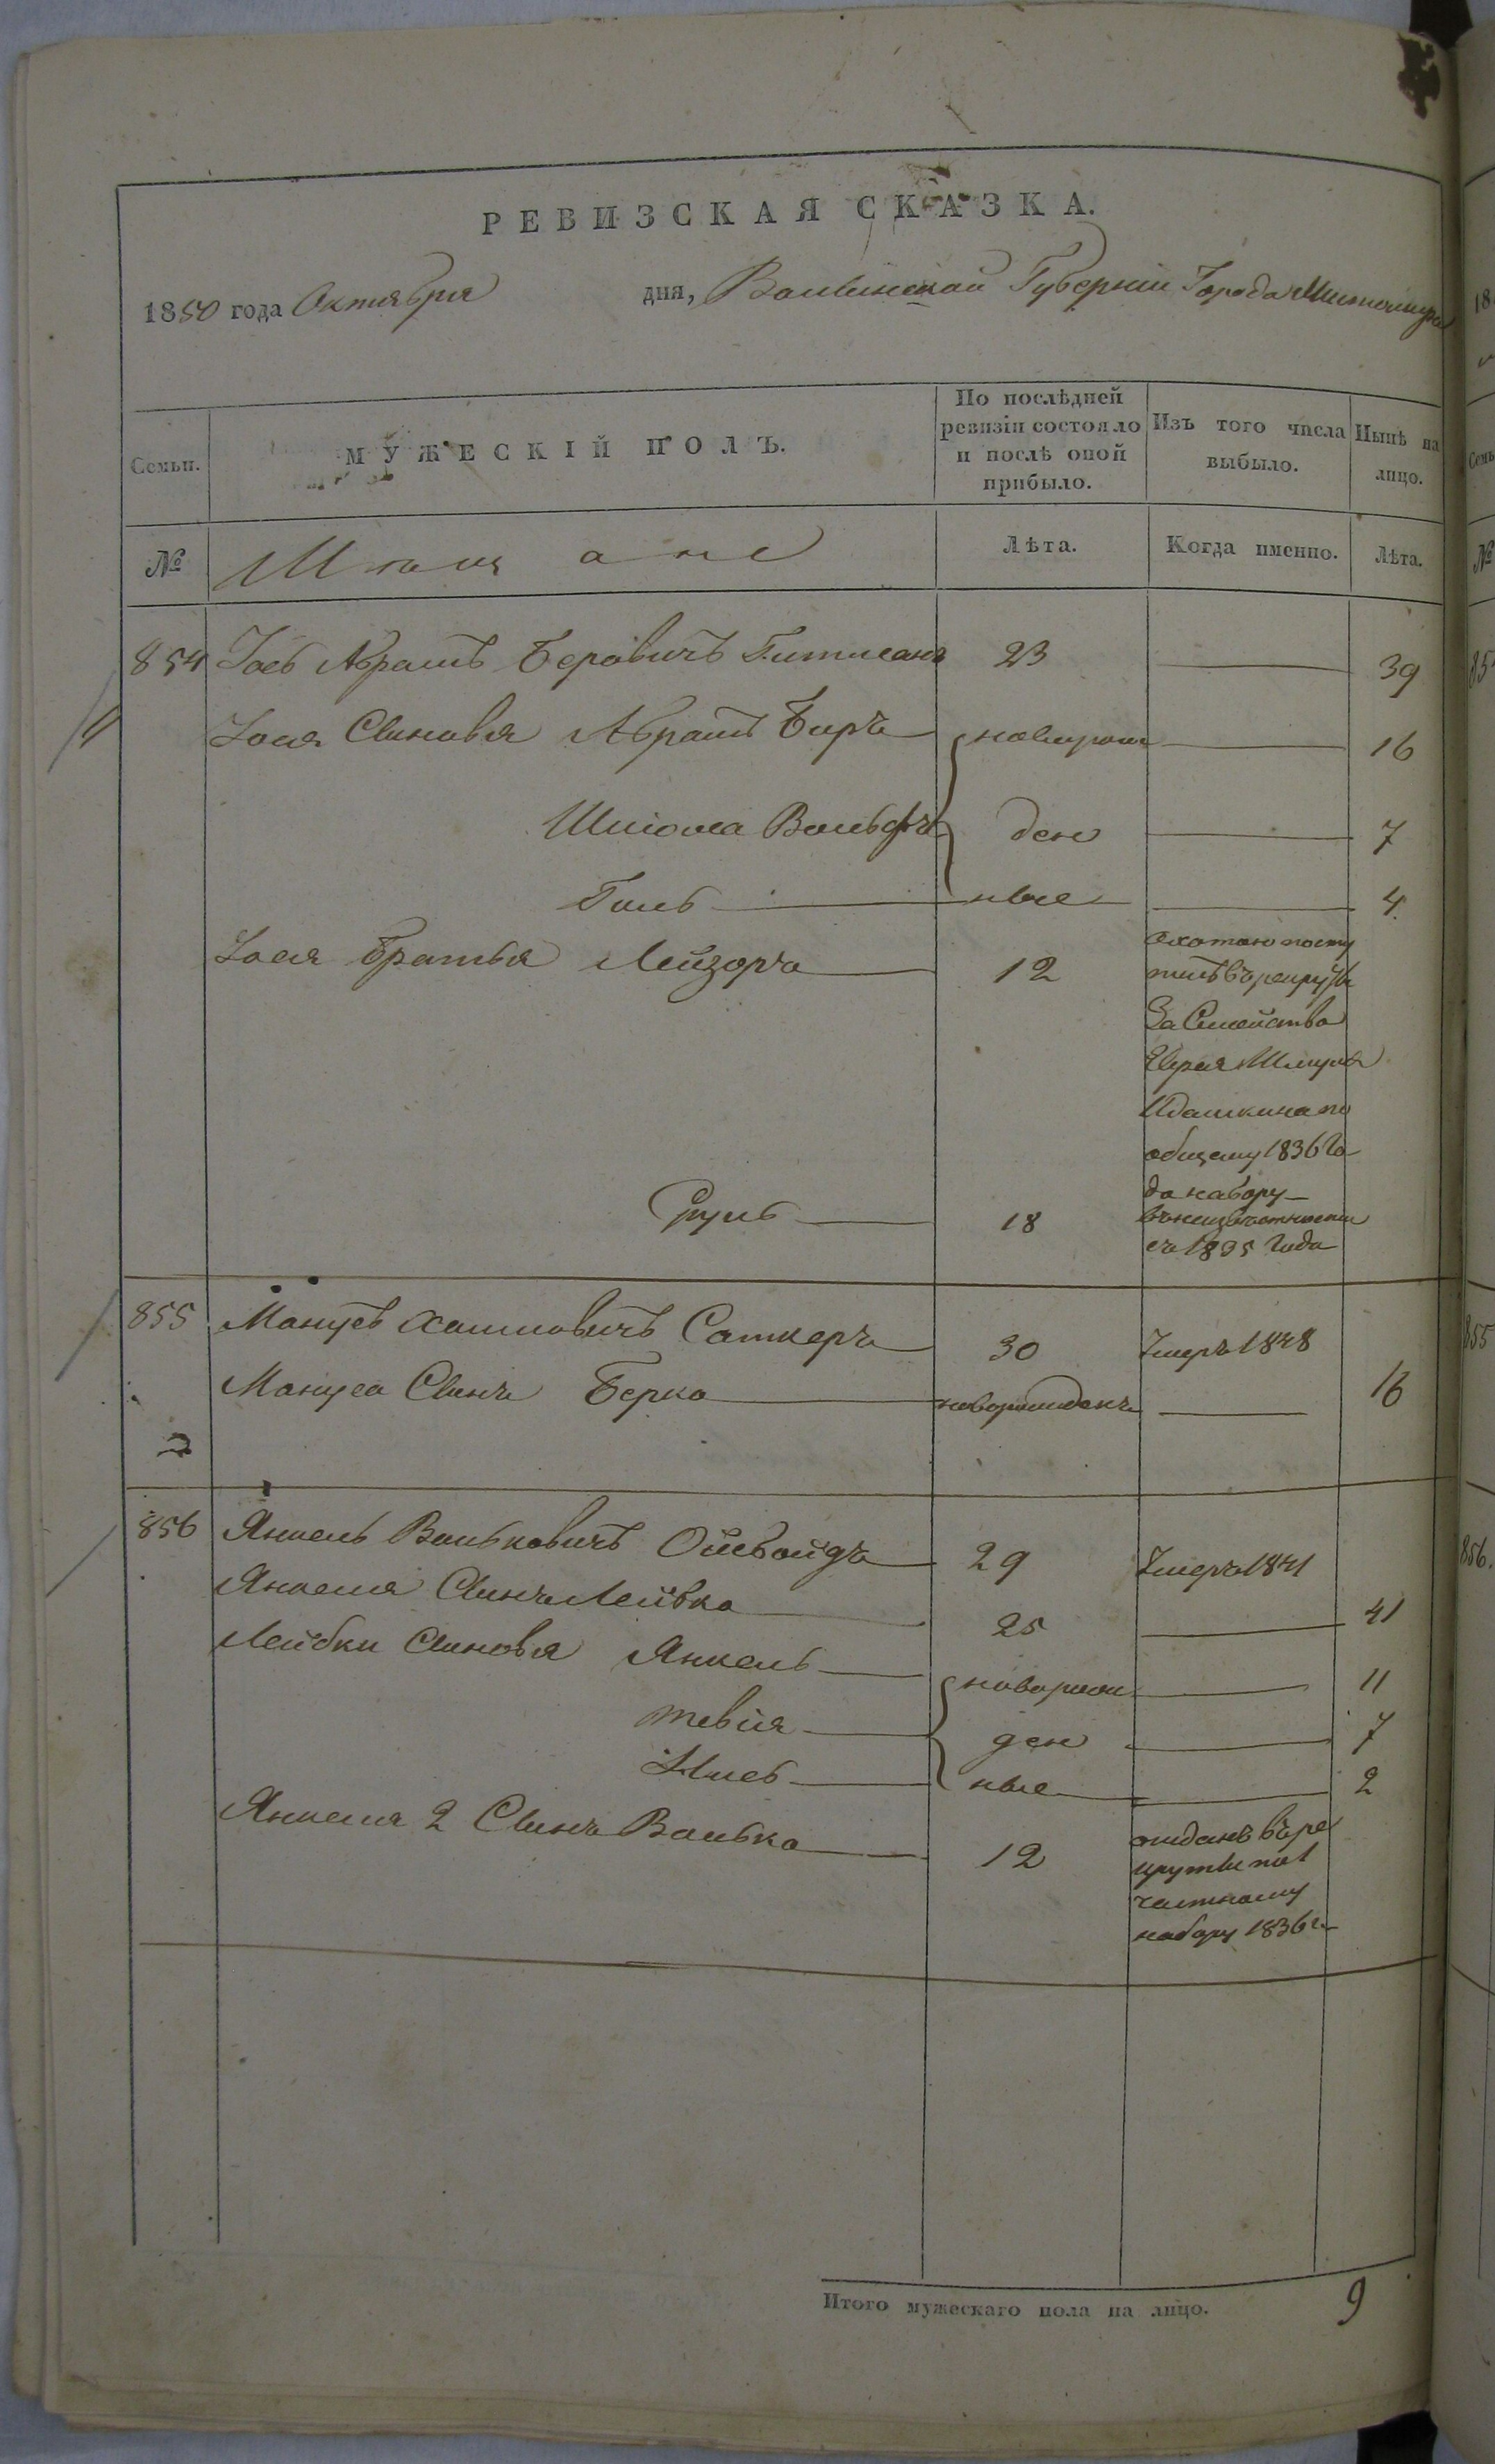 РЕВИЗСКАЯ СКАЗКА.
1850 года Октября дня, Волынской Губерніи Города Житомира
Семьи. МУЖЕСКІЙ ПОЛЪ. По послѣдней ревизіи состояло и послѣ оной прибыло. Изъ того числа выбыло. Нынѣ на лицо.
№ Мѣщане Лѣта. Когда именно. Лѣта.
854 Іось Абрамъ Беровичъ 23 39
Іося Сыновья Абрамъ Беръ новорож 16
Шліома Вольфъ ден 7
Гиль ные 4
Іося братья Лейзоръ 12 охотою посту
пилъ въ рекруты
за Семейства
Еврея Шмуля
по
общему 1836 го
да набору
Сруль 18 въ неизвѣстности
съ 1835 года
855 Манусъ Хаимовичъ Саткеръ 30 Умеръ 1848
Мануса Сынъ Берко новорожденъ 16
856 Янкель Вольковичъ Ойсвойдъ 29 Умеръ 1841
Янкеля Сынъ Лейбка 25 41
Лейбки Сыновья Янкель новорож 11
Тевія ден 7
ные 2
Янкеля 2 Сынъ Волько 12 отданъ въ ре
круты по 1
частному
набору 1836 г.
Итого мужескаго пола на лицо. 9